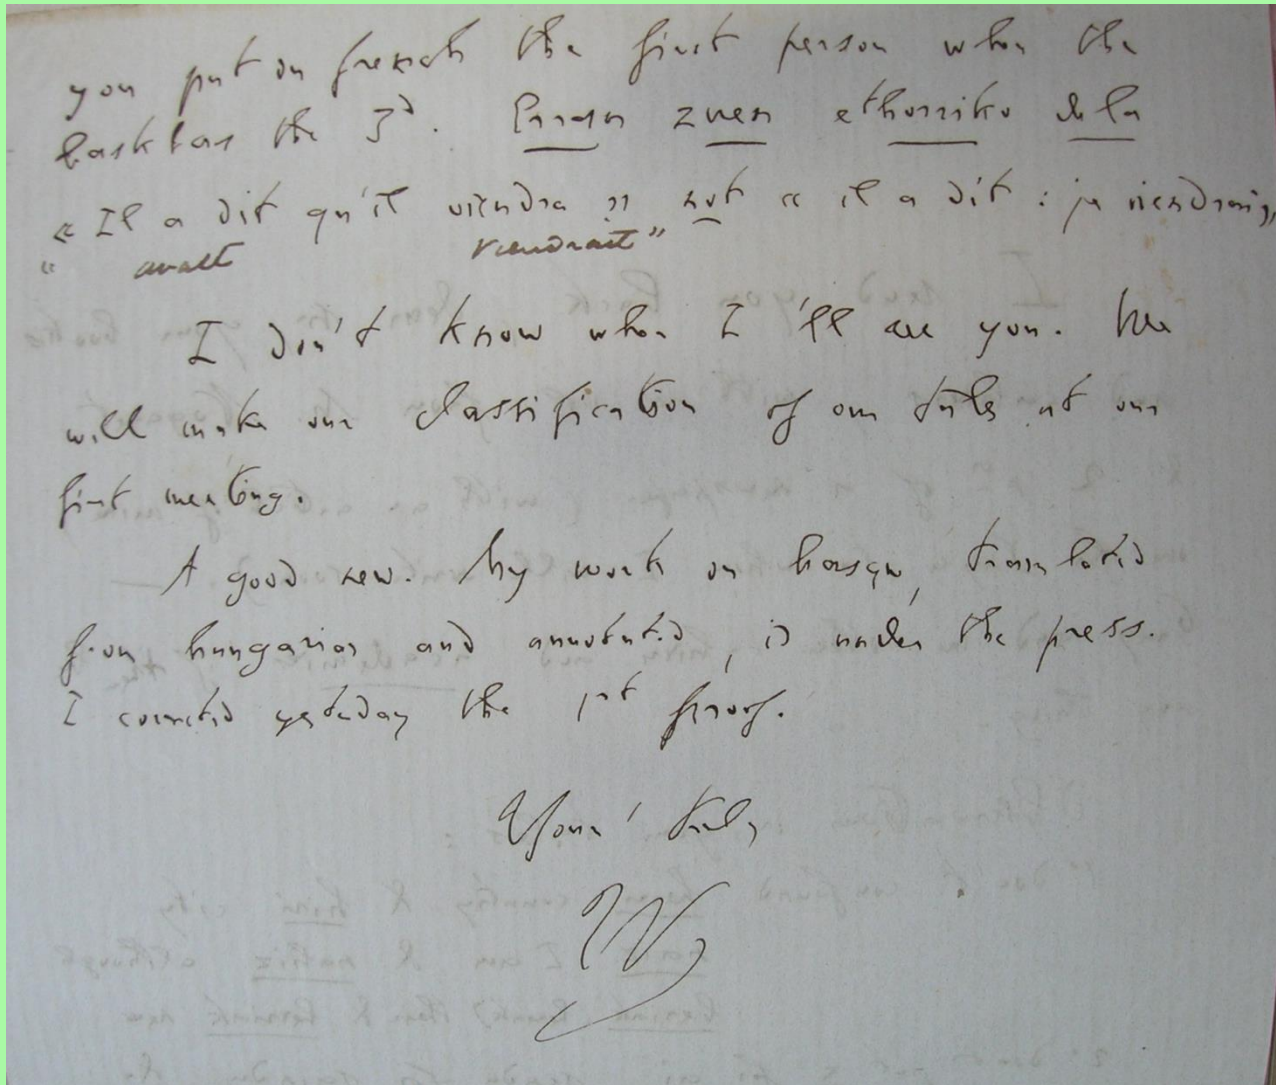 you put in french the first person when the
bask has the 3d. Erran zuen ethorriko dela
« Il a dit qu'il viendra » not « il a dit : je viendrai »
" avait viendrait "
I don't know when I'll see you. We
will make our classification of our tales at our
first meeting.
A good new. My work on basque, translated
from hungarian and annotated, is under the press.
I corrected yesterday the 1st proof.
Yours truly